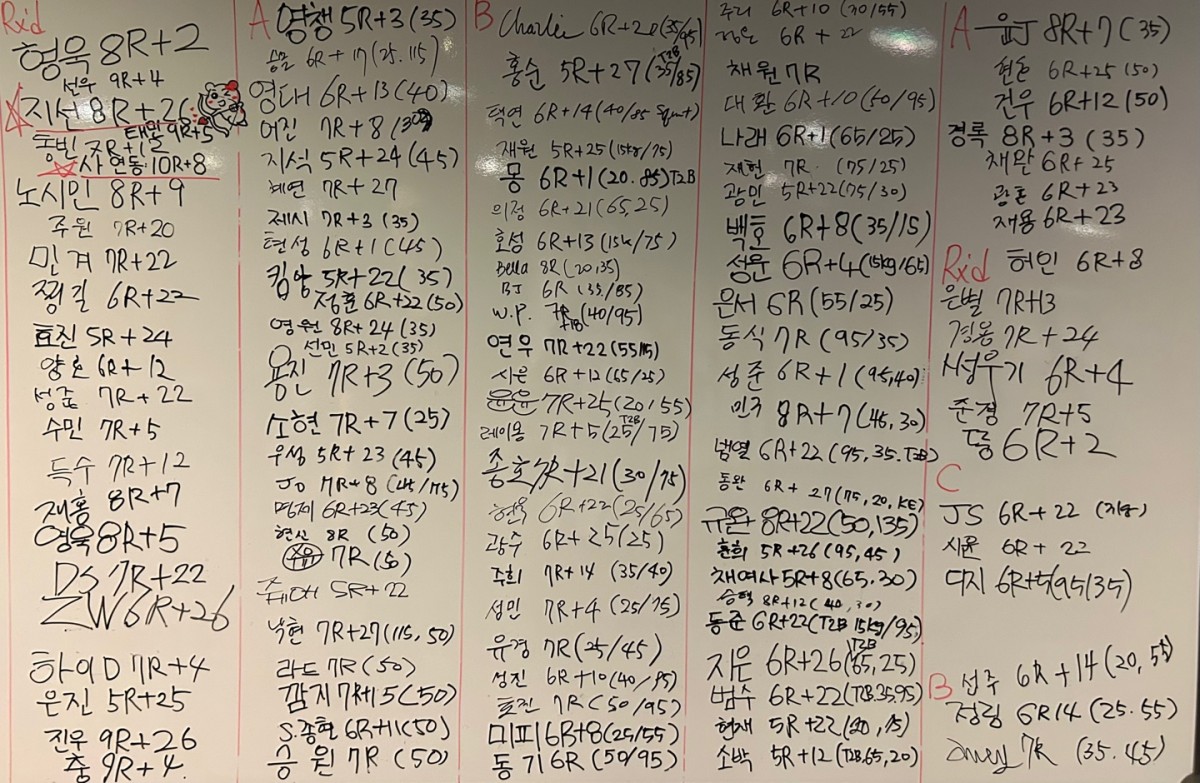 Rxd
형욱 8R+2
선우 9R+4
지선 8R+26
태일 9R+5
동빈 7R+12
사연동 10R+8
노시민 8R+9
주원 7R+20
민겨 7R+22
찡길 6R+22
효진 5R+24
양호 6R+12
성준 7R+22
수민 7R+5
득수 7R+12
재홍 8R+7
영욱 8R+5
DS 7R+22
ZW 6R+26
하이D 7R+4
은진 5R+25
진우 9R+26
충 9R+4
A
영쟁 5R+3 (35)
6R+17 (25.115)
영대 6R+13 (40)
어진 7R+8
지석 5R+24 (45)
혜연 7R+27
제시 7R+3 (35)
현성 6R+1 (45)
킴앙 5R+22 (35)
정훈 6R+22 (50)
영원 8R+24 (35)
선민 5R+2 (35)
용진 7R+3 (50)
소현 7R+7 (25)
우성 5R+23 (45)
JD 7R+8 (45/75)
명제 6R+23 (45)
현신 8R (50)
7R (50)
쥬데 5R+22
낙현 7R+27 (115, 50)
라드 7R (50)
감지 7R 5 (50)
S.종현 6R+11 (50)
승원 7R (50)
B
Charlie 6R+20 (35/95)
홍순 5R+27 (T2B 35/85)
택연 6R+14 (40/85 squat)
재원 5R+25 (15kg/75)
몽 6R+1 (20. 85) T2B
의정 6R+21 (65, 25)
호성 6R+13 (15k/75)
Bella 8R (20, 35)
BJ 6R (35/85)
W.P. 7R (40/95)
연우 7R+22 (55/15)
시은 6R+12 (65/25)
윤윤 7R+25 (20, 55)
레이용 7R+5 (T2B 25/75)
종호 7R+21 (30/75)
현욱 6R+22 (25/65)
광수 6R+25 (25)
주희 7R+14 (35/40)
성민 7R+4 (25/75)
유경 7R (25/45)
성진 6R+10 (40/85)
효진 7R (50/95)
미피 6R+8 (25/55)
동기 6R (50/95)
주리 6R+10 (30/55)
6R+22
채원 7R
대환 6R+10 (50/95)
나래 6R+1 (65/25)
재현 7R (75/25)
광민 5R+22 (75/30)
백호 6R+8 (35/15)
성문 6R+4 (15kg/65)
은서 6R (55/25)
동식 7R (95/35)
성준 6R+1 (95,40)
민국 8R+7 (45, 30)
범열 6R+22 (95, 35. T2B)
동완 6R+27 (75, 20, KE)
규완 8R+22 (50, 135)
훈희 5R+26 (95, 45)
채여사 5R+8 (65.30)
승혁 8R+12 (40, 30)
동준 6R+22 (T2B 15kg/95)
지은 6R+26 (T2B 65, 25)
범수 6R+22 (T2B.35.95)
현재 5R+22 (20, 75)
소박 5R+12 (T2B.65, 20)
A
윤J 8R+7 (35)
현돈 6R+25 (50)
건우 6R+12 (50)
경록 8R+3 (35)
채완 6R+25
광호 6R+23
재용 6R+23
Rx'd
허인 6R+8
은별 7R+13
경용 7R+24
씨성우기 6R+4
준경 7R+5
똥 6R+2
C
JS 6R+22
시윤 6R+22
댜지 6R+5 (95/35)
B
선주 6R+14 (20, 55)
정림 6R 14 (25.55)
7R (35.45)